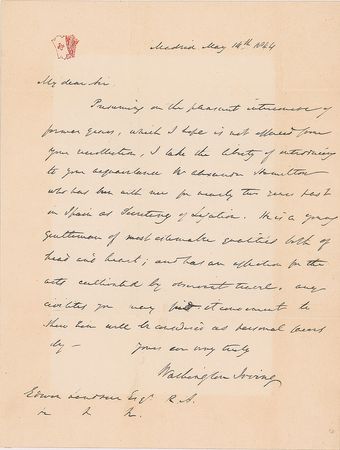 Madrid May 14th 1844
My dear Sir.
Presuming on the pleasant intercourse of
former years, which I hope is not effaced from
your recollection, I take the liberty of introducing
to your acquaintance Mr Alexander Hamilton
who has been with me for nearly two years past
in Spain as Secretary of Legation. He is a young
gentleman of most estimable qualities both of
head and heart; and has an affection for the
arts cultivated by observant travel. Any
civilities you may find it convenient to
show him will be considered as personal favors
by — Yours ever very truly
Washington Irving
Edwin Landseer Esqr R.A.